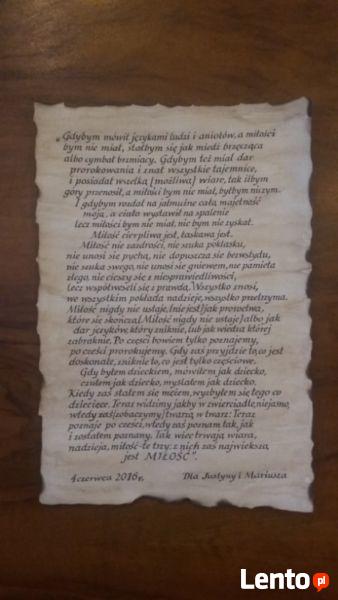 „Gdybym mówił językami ludzi i aniołów, a miłości
bym nie miał, stałbym się jak miedź brzęcząca
albo cymbał brzmiący. Gdybym też miał dar
prorokowania i znał wszystkie tajemnice,
i posiadał wszelką [możliwą] wiarę, tak iżbym
góry przenosił, a miłości bym nie miał, byłbym niczym.
I gdybym rozdał na jałmużnę całą majętność
moją, a ciało wystawił na spalenie
lecz miłości bym nie miał, nic bym nie zyskał.
Miłość cierpliwa jest, łaskawa jest.
Miłość nie zazdrości, nie szuka poklasku,
nie unosi się pychą, nie dopuszcza się bezwstydu,
nie szuka swego, nie unosi się gniewem, nie pamięta
złego, nie cieszy się z niesprawiedliwości,
lecz współweseli się z prawdą. Wszystko znosi,
we wszystkim pokłada nadzieję, wszystko przetrzyma.
Miłość nigdy nie ustaje, [nie jest] jak proroctwa,
które się skończą [Miłość nigdy nie ustaje] albo jak
dar języków, który zniknie, lub jak wiedza której
zabraknie. Po części bowiem tylko poznajemy,
po części prorokujemy. Gdy zaś przyjdzie to, co jest
doskonałe, zniknie to, co jest tylko częściowe.
Gdy byłem dzieckiem, mówiłem jak dziecko,
czułem jak dziecko, myślałem jak dziecko.
Kiedy zaś stałem się mężem, wyzbyłem się tego co
dziecięce. Teraz widzimy jakby w zwierciadle, niejasno,
wtedy zaś [zobaczymy] twarzą w twarz: Teraz
poznaję po części, wtedy zaś poznam tak, jak
i zostałem poznany. Tak więc trwają wiara,
nadzieja, miłość-te trzy: z nich zaś największa
jest MIŁOŚĆ".
4 czerwca 2016r, Dla Justyny i Mariusza
Lento.pl